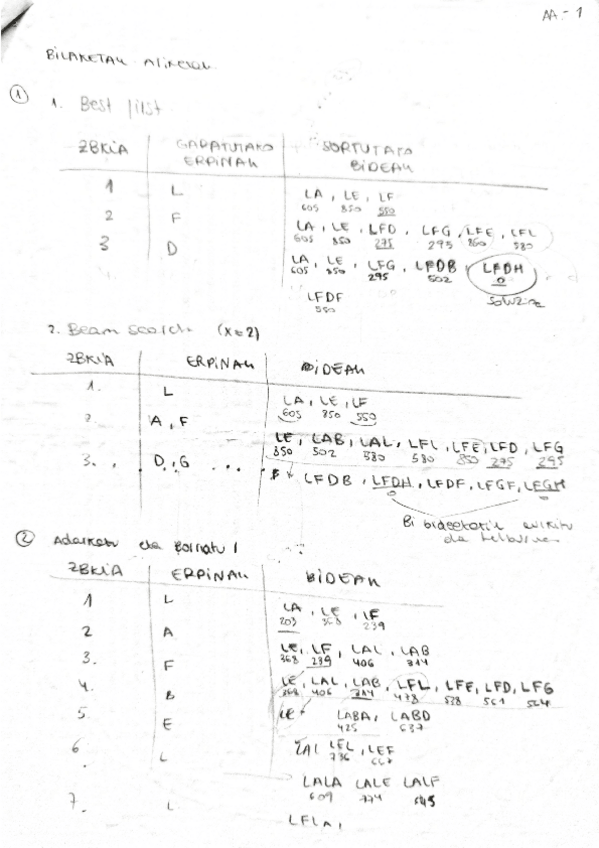 AA - 1
BILAKETAK
①
1. Best first
ZBKIA GARATUTAKO ERPINAK SORTUTAKO BIDEAK
1 L LA, LE, LF
605 850 550
2 F LA, LE, LFD, LFG, LFE, LFL
605 850 275 295 850 580
3 D LA, LE, LFG, LFDB, LFDH
605 850 295 502 0
LFDF
550
2. Beam search (x=2)
ZBKIA ERPINAK BIDEAK
1. L LA, LE, LF
605 850 550
2. A, F LE, LAB, LAL, LFL, LFE, LFD, LFG
850 502 580 580 850 275 295
3. D, G ... LFDB, LFDH, LFDF, LFGF, LFGH
0 0
Bi bideetatik
da
② Adarkatu eta bornatu
ZBKIA ERPINAK BIDEAK
1 L LA, LE, LF
203 368 239
2 A LE, LF, LAL, LAB
368 239 406 314
3. F LE, LAL, LAB, LFL, LFE, LFD, LFG
368 406 314 478 538 561 564
4. B LE LABA, LABD
425 637
5. E LAL LEL, LEF
736
6. L LALA LALE LALF
609 774 645
7. L LFLA,